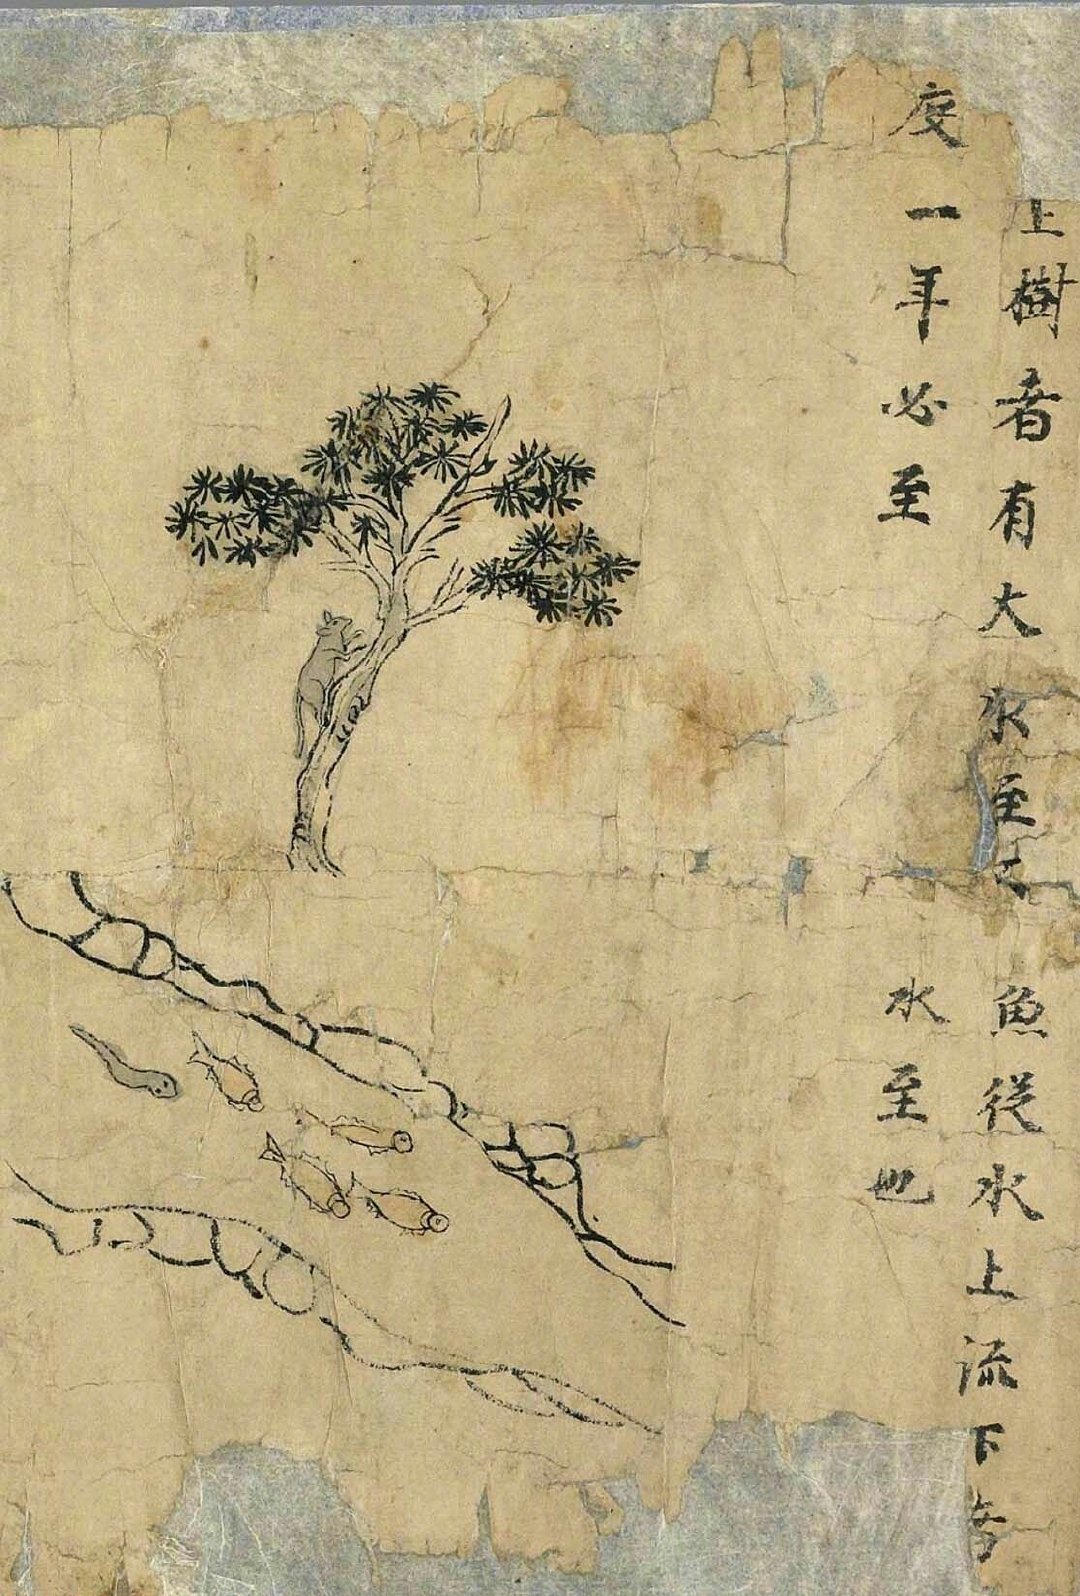 上樹者有大水至
度一年必至
魚從水上流下者
水至也